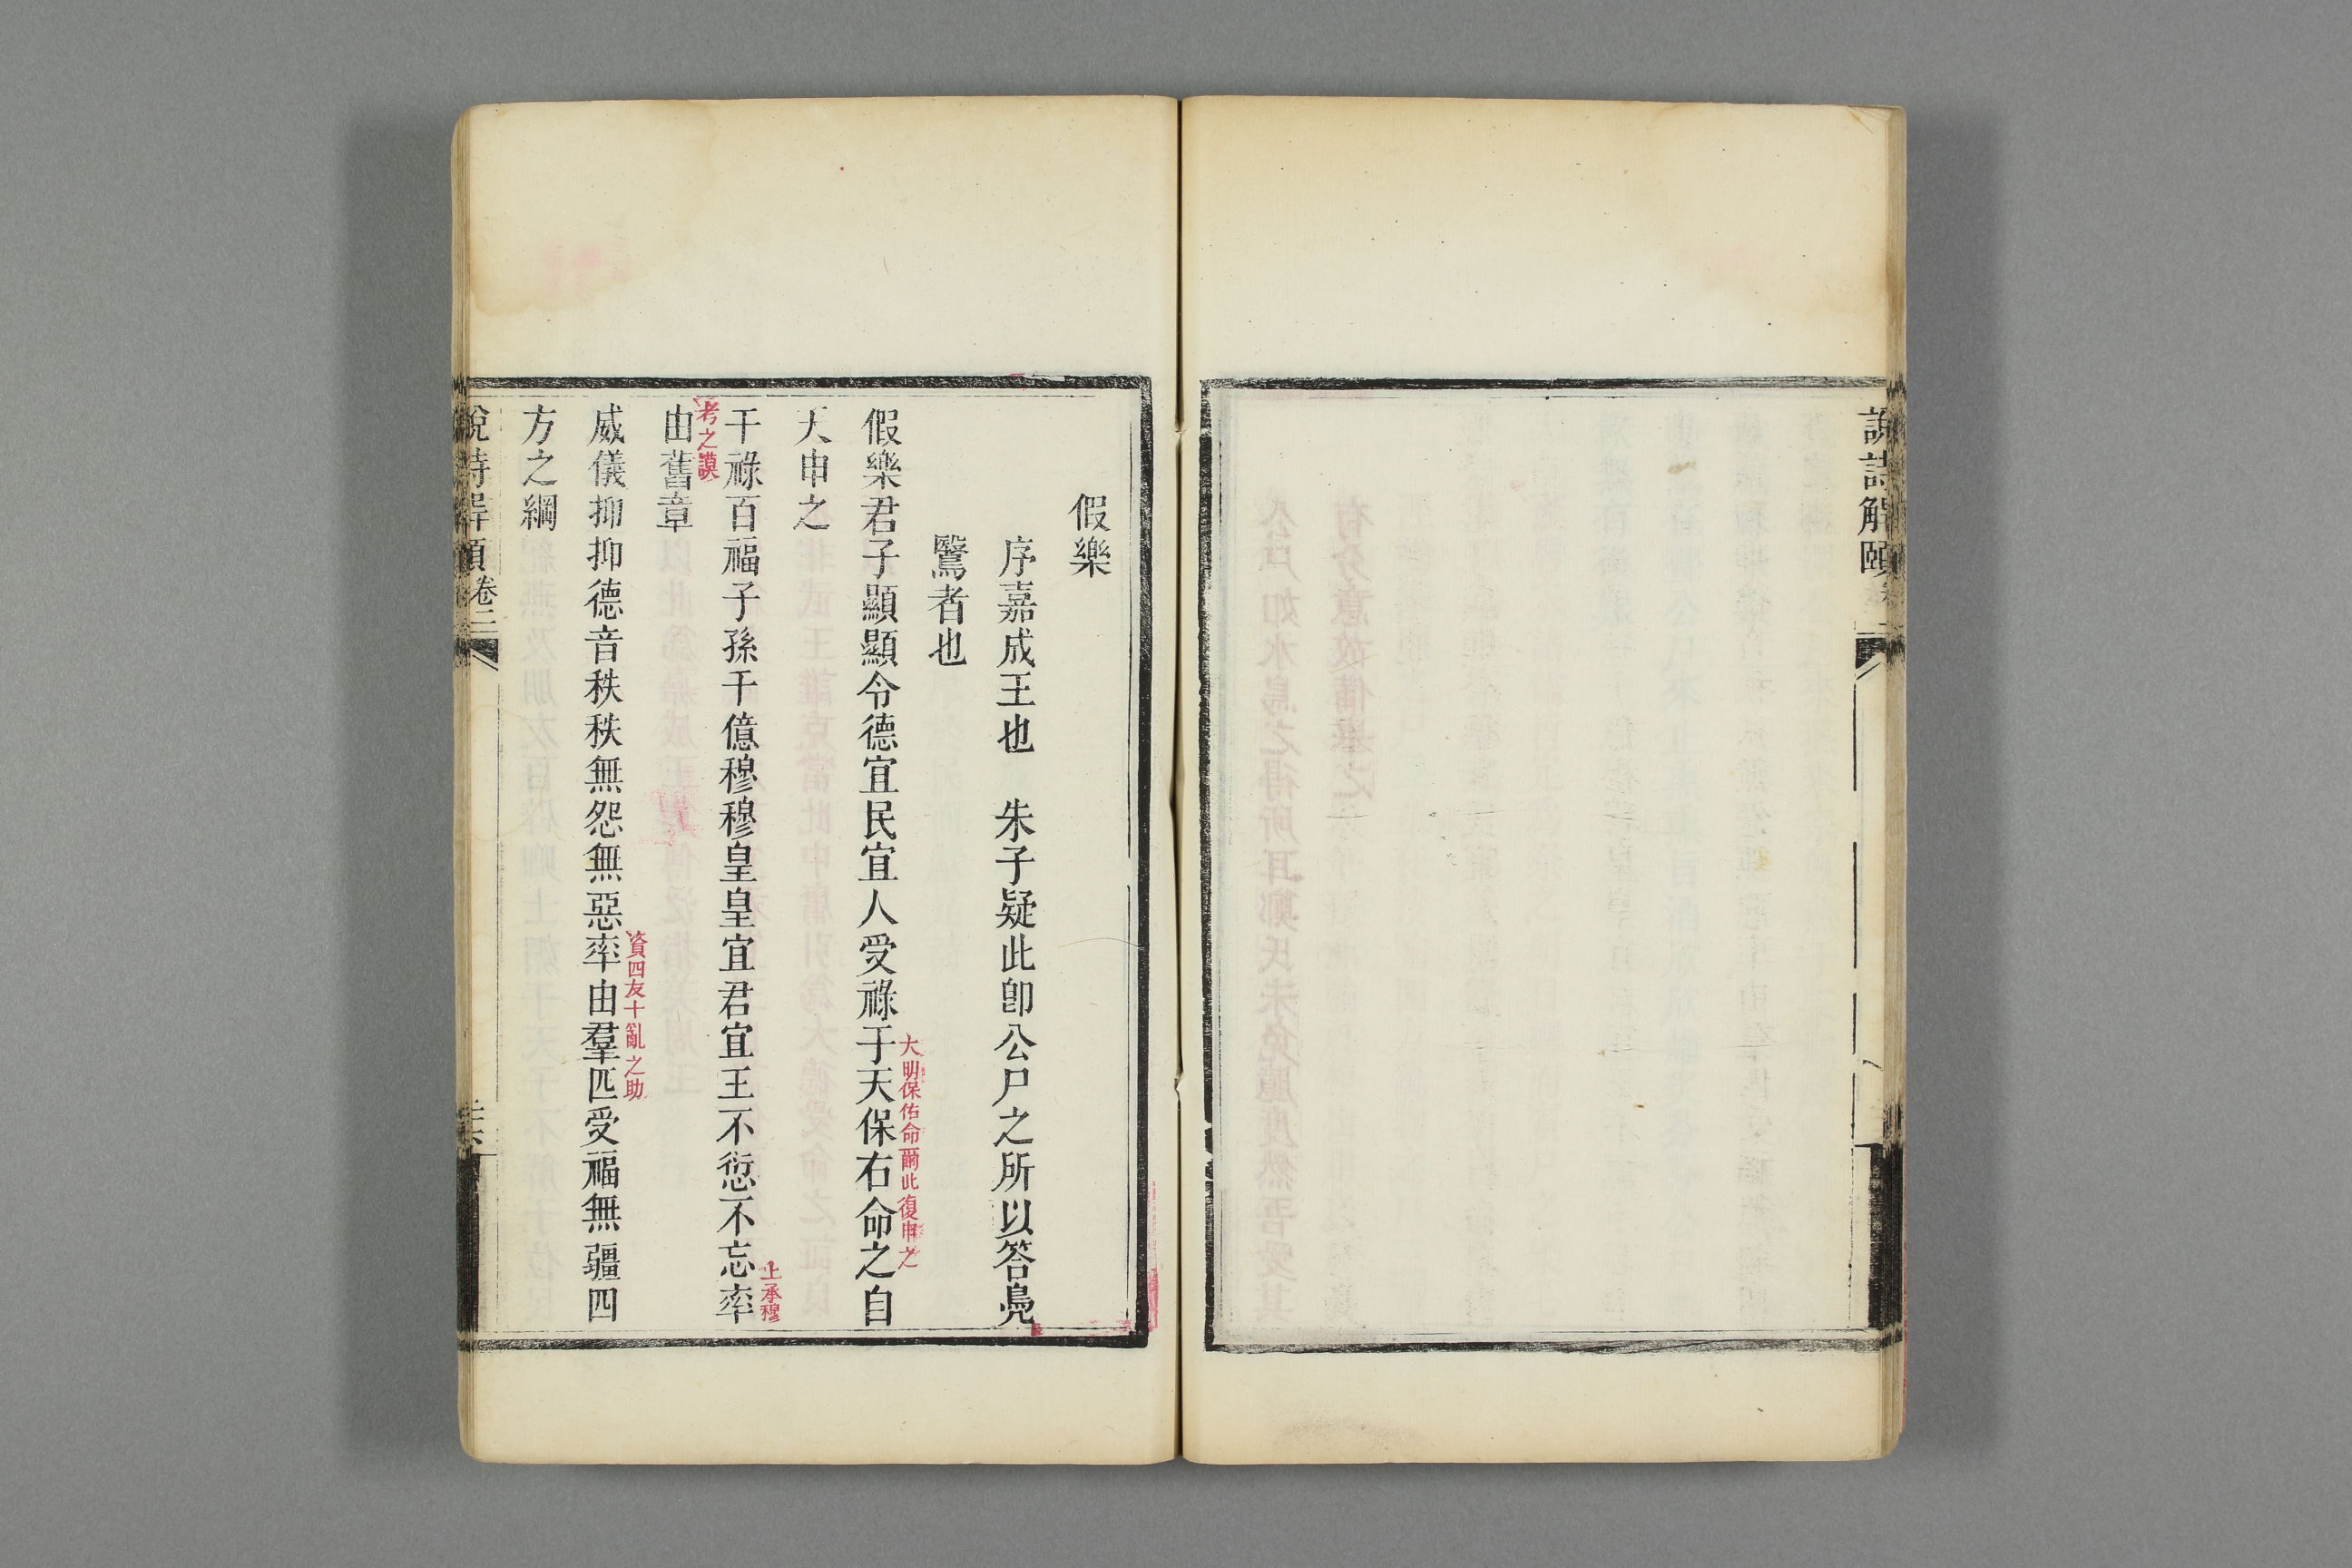 說詩解頤
假樂
序嘉成王也　朱子疑此卽公尸之所以答鳧
鷖者也
假樂君子顯顯令德宜民宜人受祿于天保右命之自
大明保佑命爾此復申之
天申之
干祿百福子孫千億穆穆皇皇宜君宜王不愆不忘率
上承穆
考之謨
由舊章
威儀抑抑德音秩秩無怨無惡率由羣匹受福無疆四
資四友十亂之助
方之綱
說詩解頤卷二